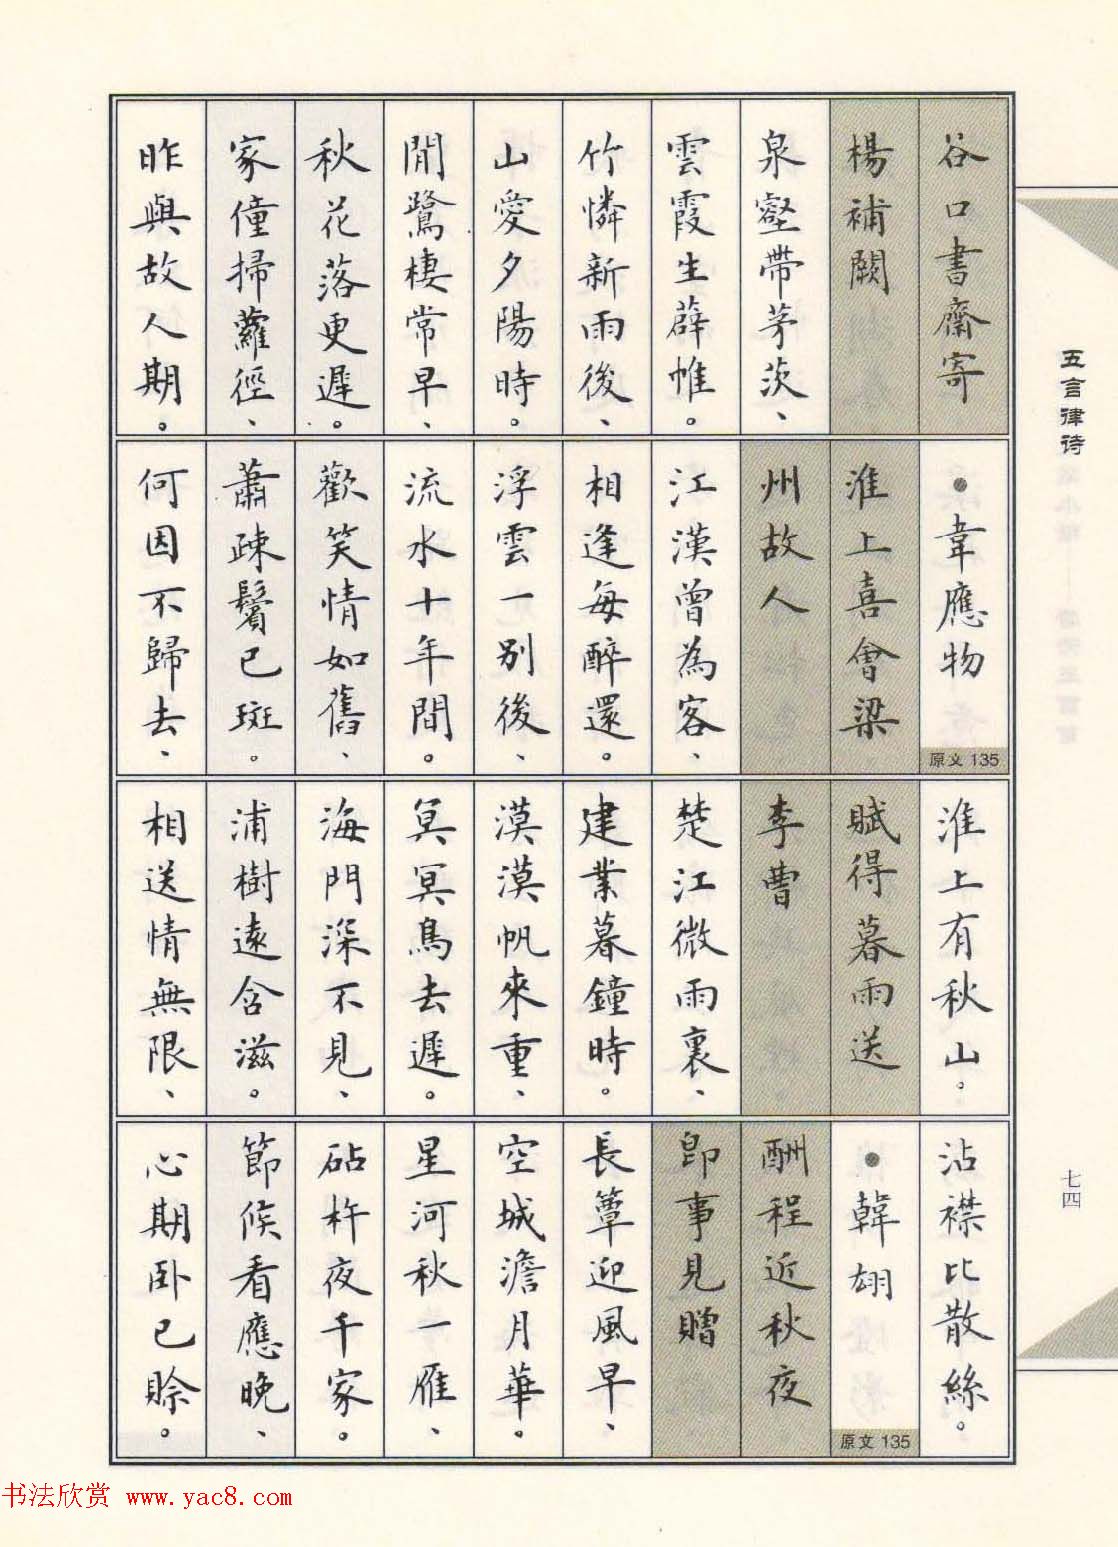 五言律诗
谷口書齋寄
楊補闕
泉壑帶茅茨、
雲霞生薜帷。
竹憐新雨後、
山愛夕陽時。
閒鷺棲常早、
秋花落更遲。
家僮掃蘿徑、
昨與故人期。
●韋應物
原文 135
淮上喜會梁
州故人
江漢曾為客、
相逢每醉還。
浮雲一別後、
流水十年間。
歡笑情如舊、
蕭疎鬢已斑。
何因不歸去、
淮上有秋山。
賦得暮雨送
李曹
楚江微雨裏、
建業暮鐘時。
漠漠帆來重、
冥冥鳥去遲。
海門深不見、
浦樹遠含滋。
相送情無限、
沾襟比散絲。
●韓翃
原文 135
酬程近秋夜
即事見贈
長簟迎風早、
空城澹月華。
星河秋一雁、
砧杵夜千家。
節候看應晚、
心期卧已賒。
七四
书法欣赏 www.yac8.com